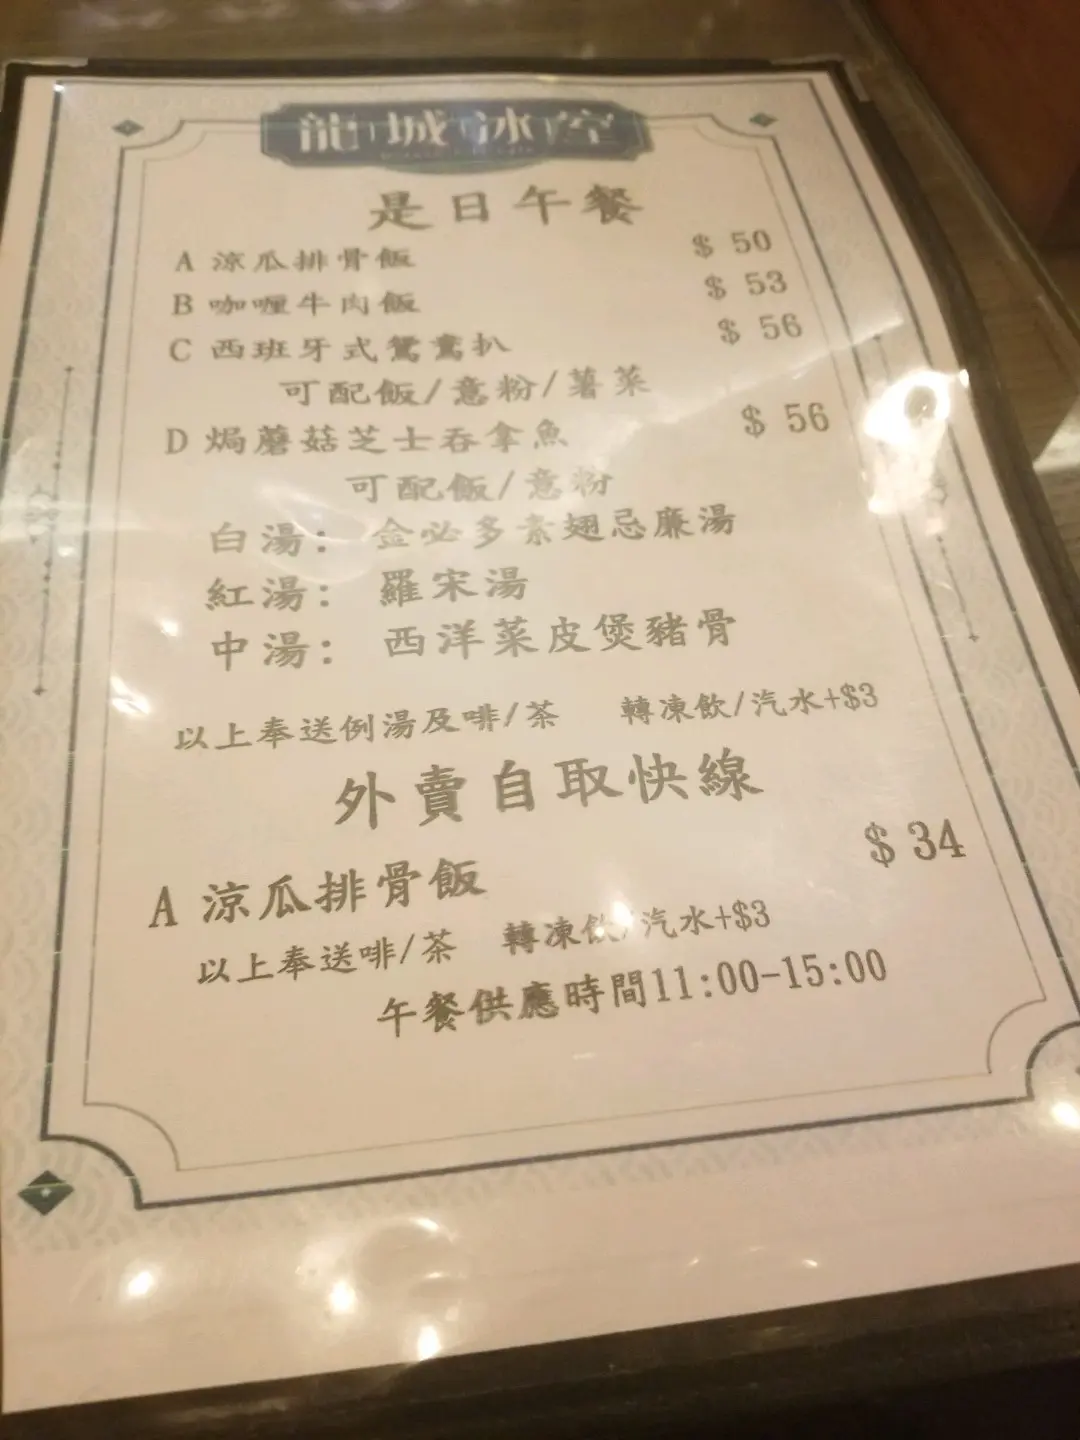 龍城冰室
是日午餐
A 涼瓜排骨飯 $ 50
B 咖喱牛肉飯 $ 53
C 西班牙式鴛鴦扒 $ 56
可配飯/意粉/薯菜
D 焗蘑菇芝士吞拿魚 $ 56
可配飯/意粉
白湯: 金必多素翅忌廉湯
紅湯: 羅宋湯
中湯: 西洋菜皮煲豬骨
以上奉送例湯及啡/茶 轉凍飲/汽水+$3
外賣自取快線
A 涼瓜排骨飯 $ 34
以上奉送啡/茶 轉凍飲/汽水+$3
午餐供應時間11:00-15:00